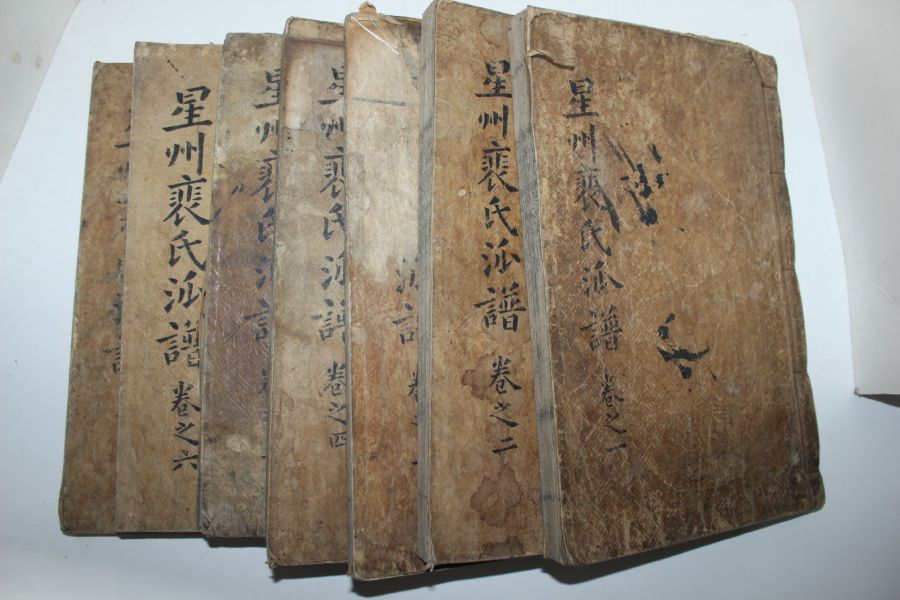 星州裵氏派譜 卷之一
星州裵氏派譜 卷之二
派譜 卷
星州裵氏派譜 卷之四
星州裵氏派譜 卷
星州裵氏派譜 卷之六